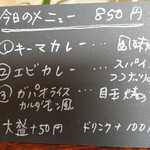 今日のメニュー 850円
①キーマカレー…
②エビカレー… スパイ
ココナッツ
③ガパオライス… 目玉焼の
カルダモン風
大盛+50円 ドリンク+100円